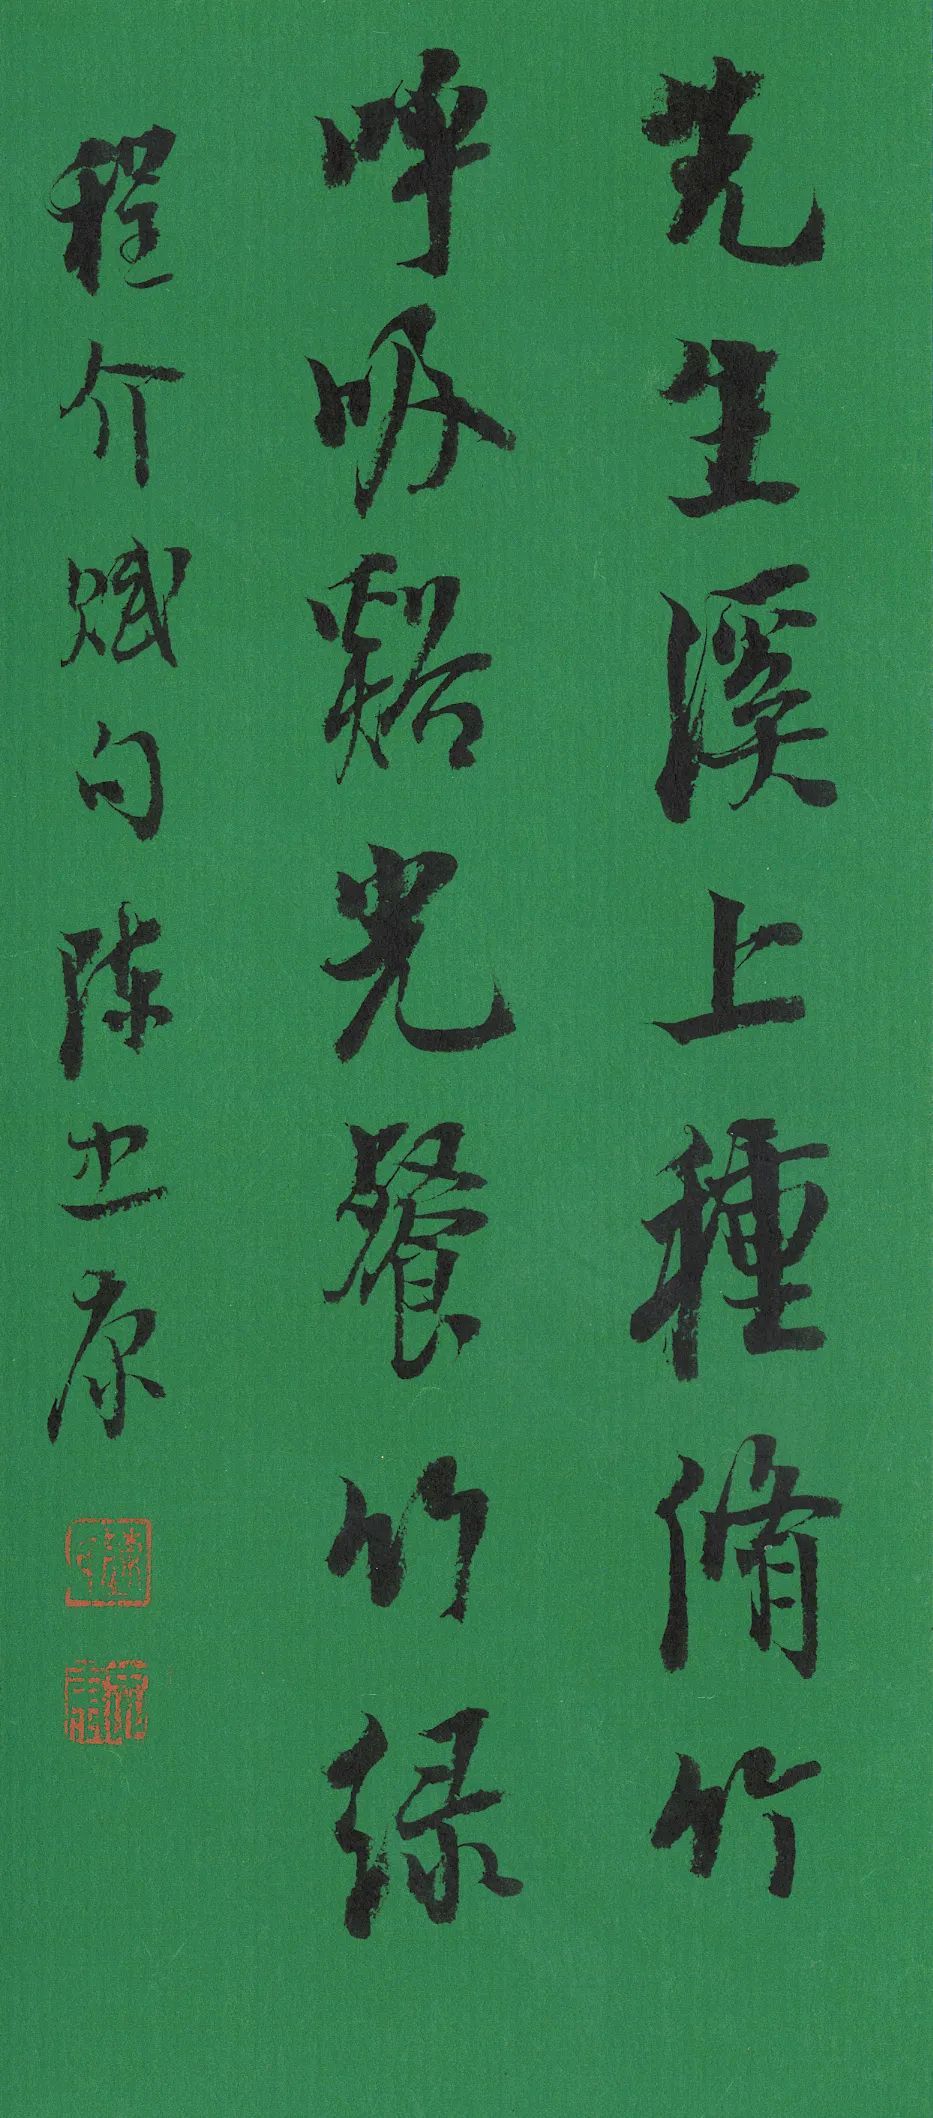 先生溪上種脩竹
呼吸谿光餐竹綠
程介賦句陳忠康